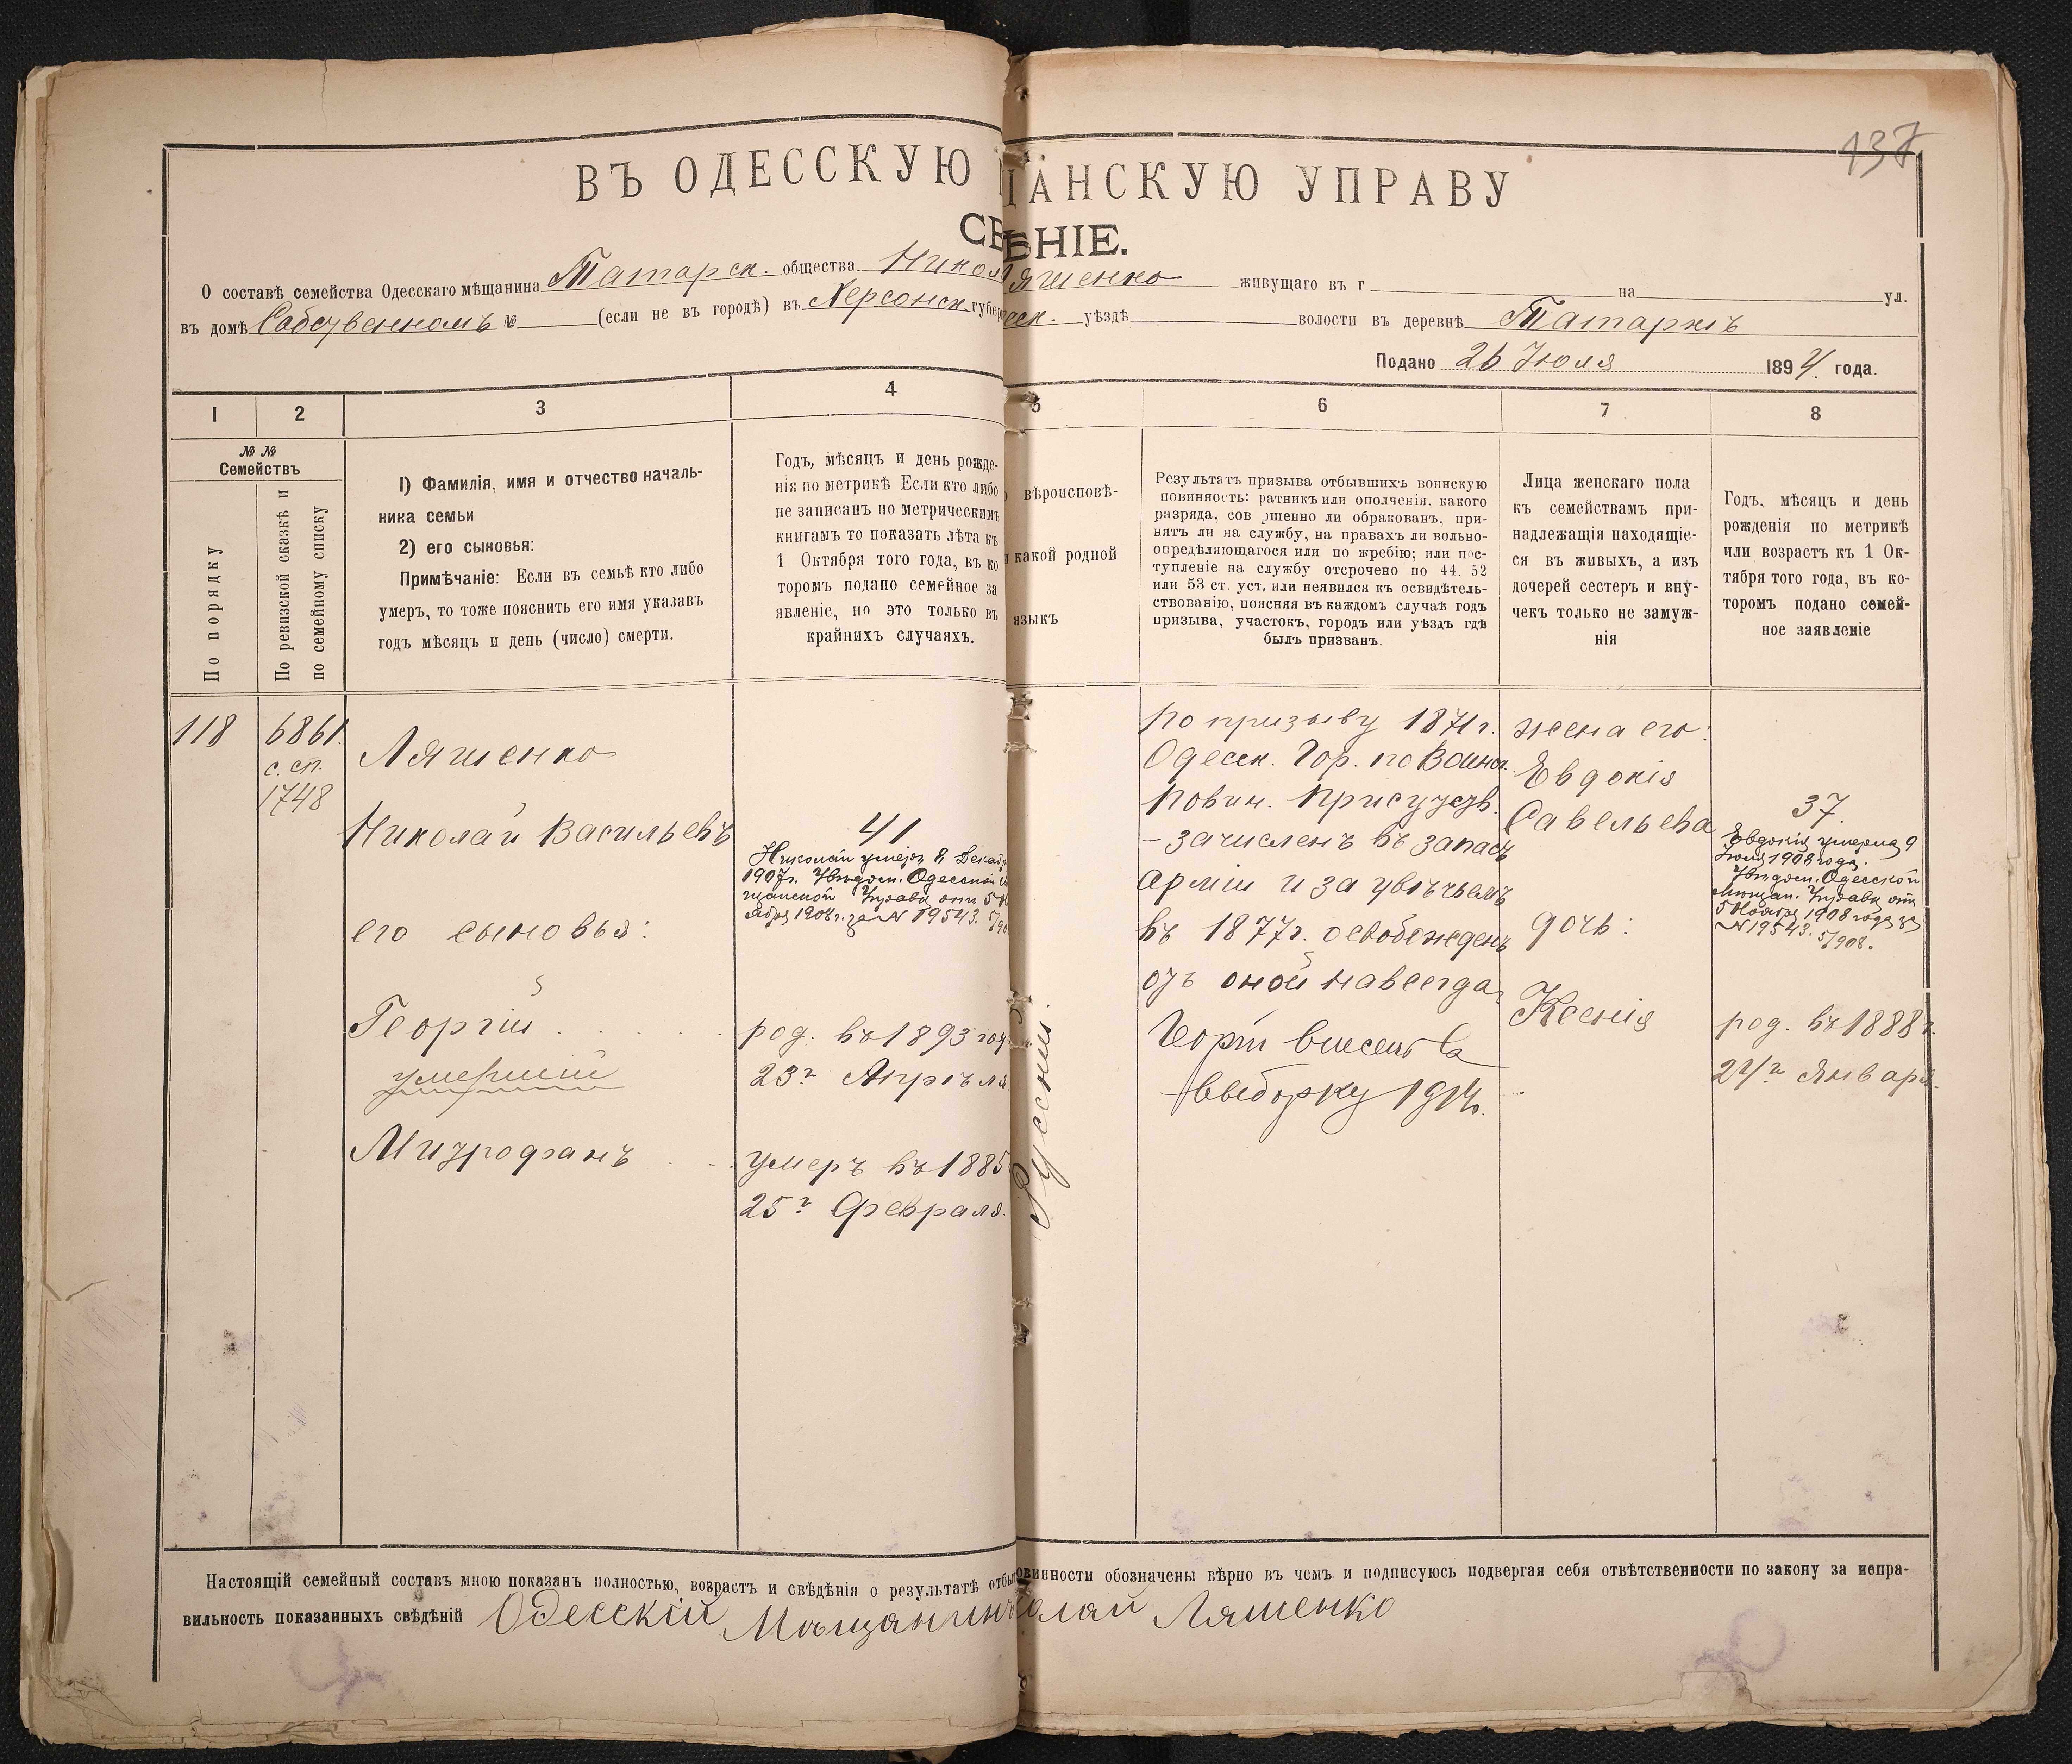 137
ВЪ ОДЕССКУЮ ЩАНСКУЮ УПРАВУ
СВѢНІЕ.
О составѣ семейства Одесскаго мѣщанина Татарск. общества Никол Ляшенко живущаго въ г на ул.
въ домѣ Собственномъ № (если не въ городѣ) въ Херсонск. губер уѣздѣ волости въ деревнѣ Татаркѣ
Подано 26 Іюля 1894 года.
1 2 3 4 5 6 7 8
№ №
Семействъ
По порядку
По ревизской сказкѣ и
по семейному списку
1) Фамилія, имя и отчество началь-
ника семьи
2) его сыновья:
Примѣчаніе: Если въ семьѣ кто либо
умеръ, то тоже пояснить его имя указавъ
годъ мѣсяцъ и день (число) смерти.
Годъ, мѣсяцъ и день рожде-
нія по метрикѣ Если кто либо
не записанъ по метрическимъ
книгамъ то показать лѣта къ
1 Октября того года, въ ко
торомъ подано семейное за
явленіе, но это только въ
крайнихъ случаяхъ.
вѣроисповѣ-
какой родной
языкъ
Результатъ призыва отбывшихъ воинскую
повинность: ратникъ или ополченія, какого
разряда, сов ршенно ли обракованъ, при-
нятъ ли на службу, на правахъ ли вольно-
опредѣляющагося или по жребію; или пос-
тупленіе на службу отсрочено по 44. 52
или 53 ст. уст. или неявился къ освидѣтель-
ствованію, поясняя въ каждомъ случаѣ годъ
призыва, участокъ, городъ или уѣздъ гдѣ
былъ призванъ.
Лица женскаго пола
къ семействамъ при-
надлежащія находящіе-
ся въ живыхъ, а изъ
дочерей сестеръ и вну-
чекъ только не замуж-
нія
Годъ, мѣсяцъ и день
рожденія по метрикѣ
или возрастъ къ 1 Ок-
тября того года, въ ко-
торомъ подано семей-
ное заявленіе
118
6861.
с. сп.
1748
Ляшенко
Николай Васильевъ
его сыновья:
Георгій
умершій
Митрофанъ
41
Николай умеръ 8 Декабр
1907г. Увѣдом. Одесской М
щанской Управы отъ 5 Н
ября 1908 г. за № 19543. 5/908
род. въ 1893 год
23г Апрѣля
умеръ въ 1885
25г Февраля.
Русскій.
По призыву 1871 г.
Одесск. Гор. по Воинс.
Повин. Присутств.
– зачисленъ въ запасъ
Арміи и за увѣчьемъ
въ 1877г. освобожденъ
отъ оной навсегда
Георгій внесенъ въ
выборку 1914г.
жена его:
Евдокія
Савельева
дочь:
Ксенія
37.
Евдокія умерла 9
Іюля 1908 года.
Увѣдом. Одесской
Мѣщан. Управы отъ
5 Ноября 1908 года за
№ 19543. 5/908.
род. въ 1888 г.
24г Января.
Настоящій семейный составъ мною показанъ полностью, возрастъ и свѣдѣнія о результатѣ отбы овинности обозначены вѣрно въ чемъ и подписуюсь подвергая себя отвѣтственности по закону за непра-
вильность показанныхъ свѣдѣній Одесскій Мѣщанинъ олай Ляшенко